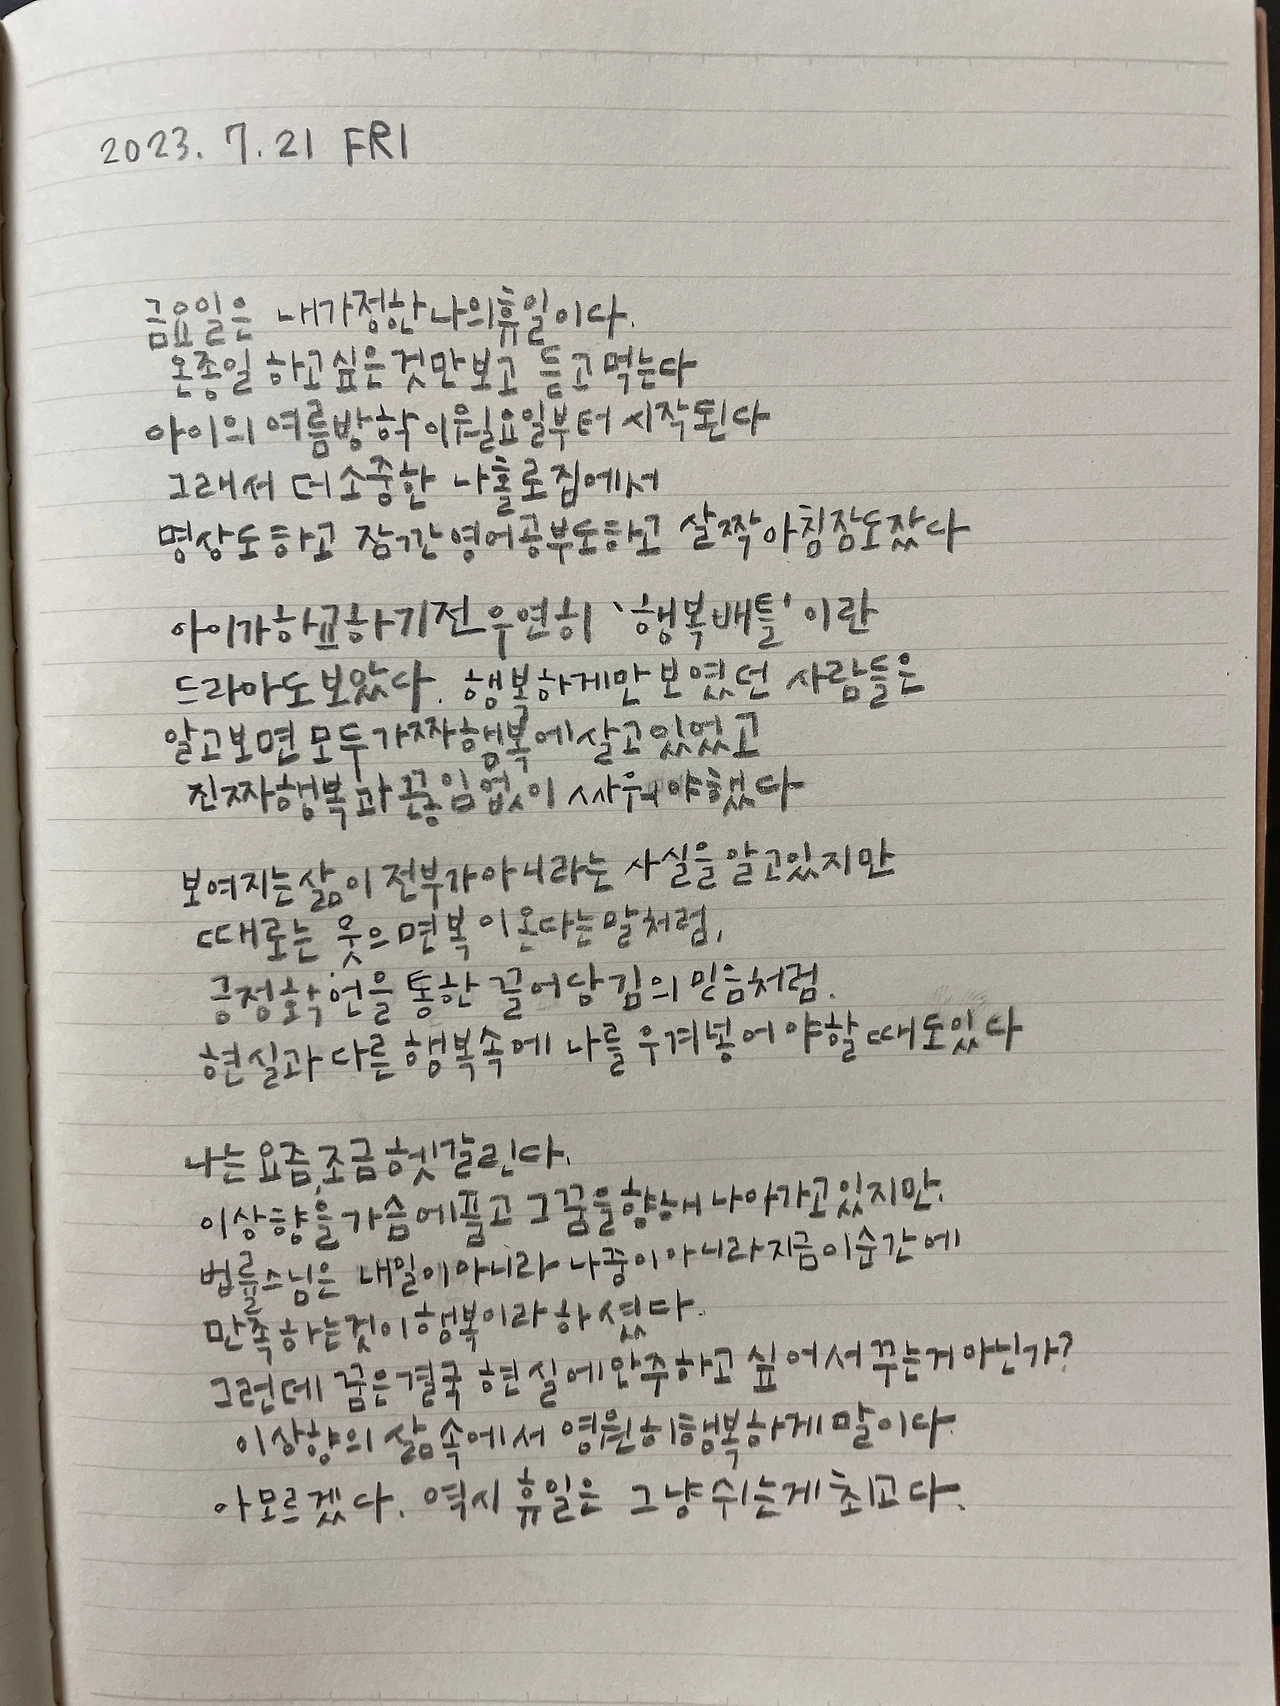 2023. 7. 21 FRI
금요일은 내가정한 나의휴일이다.
온종일 하고싶은것만보고 듣고먹는다
아이의 여름방학이월요일부터 시작된다
그래서 더소중한 나홀로집에서
명상도하고 잠깐영어공부도하고 살짝아침잠도잤다
아이가하교하기전우연히 '행복배틀'이란
드라마도보았다. 행복하게만보였던 사람들은
알고보면모두가짜행복에살고있었고
진짜행복과끊임없이 싸워야했다
보여지는삶이전부가아니라는 사실을알고있지만
때로는 웃으면복이온다는말처럼,
긍정확언을통한 끌어당김의믿음처럼.
현실과다른행복속에 나를우겨넣어야할때도있다
나는요즘,조금헷갈린다.
이상향을가슴에품고그꿈을향해나아가고있지만.
법륜스님은 내일이아니라 나중이아니라지금이순간에
만족하는것이행복이라하셨다.
그런데꿈은결국 현실에안주하고싶어서꾸는거아닌가?
이상향의 삶속에서 영원히행복하게말이다.
아모르겠다. 역시휴일은 그냥쉬는게최고다.